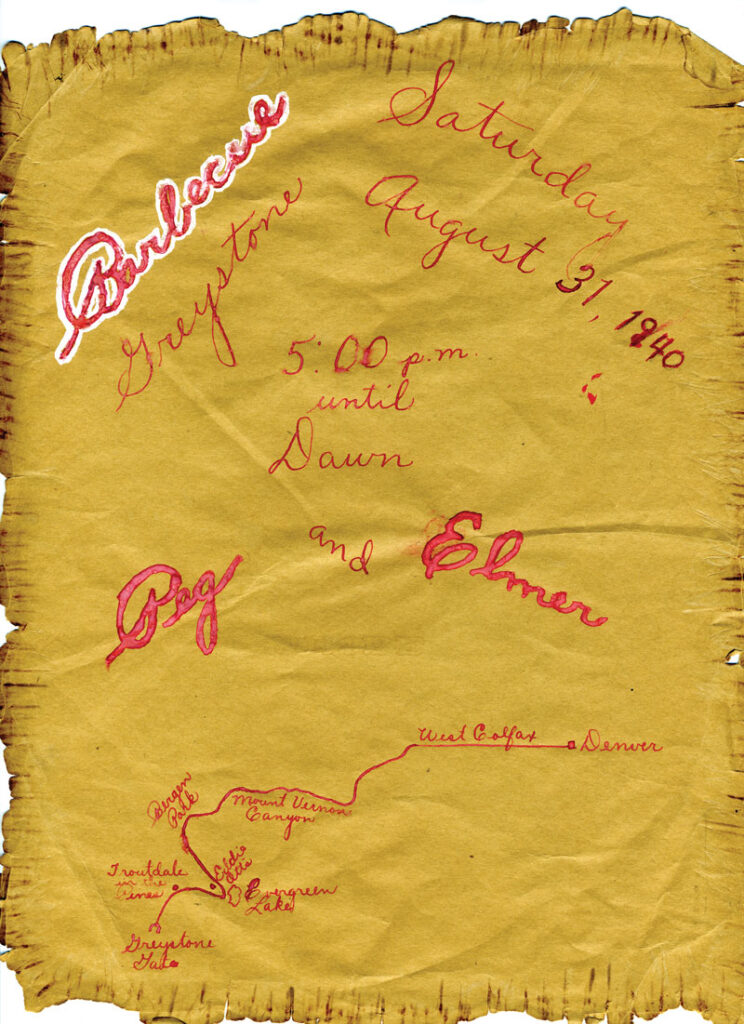 Barbecue
Greystone
Saturday
August 31, 1940
5:00 p.m.
until
Dawn
Peg
and
Elmer
West Colfax
Denver
Mount Vernon
Canyon
Bergen
Park
Eddie
Otts
Troutdale
in the
Pines
Evergreen
Lake
Greystone
Gate